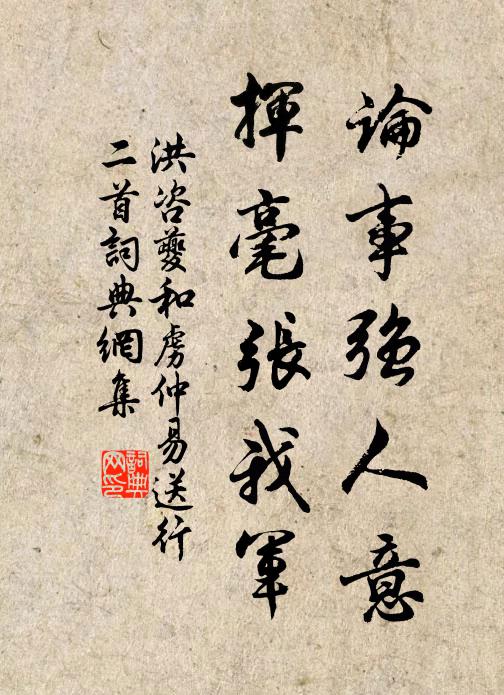 論事強人意
揮毫張我軍
洪咨夔和虜仲易送行
二首詞典網集
詞典
网印